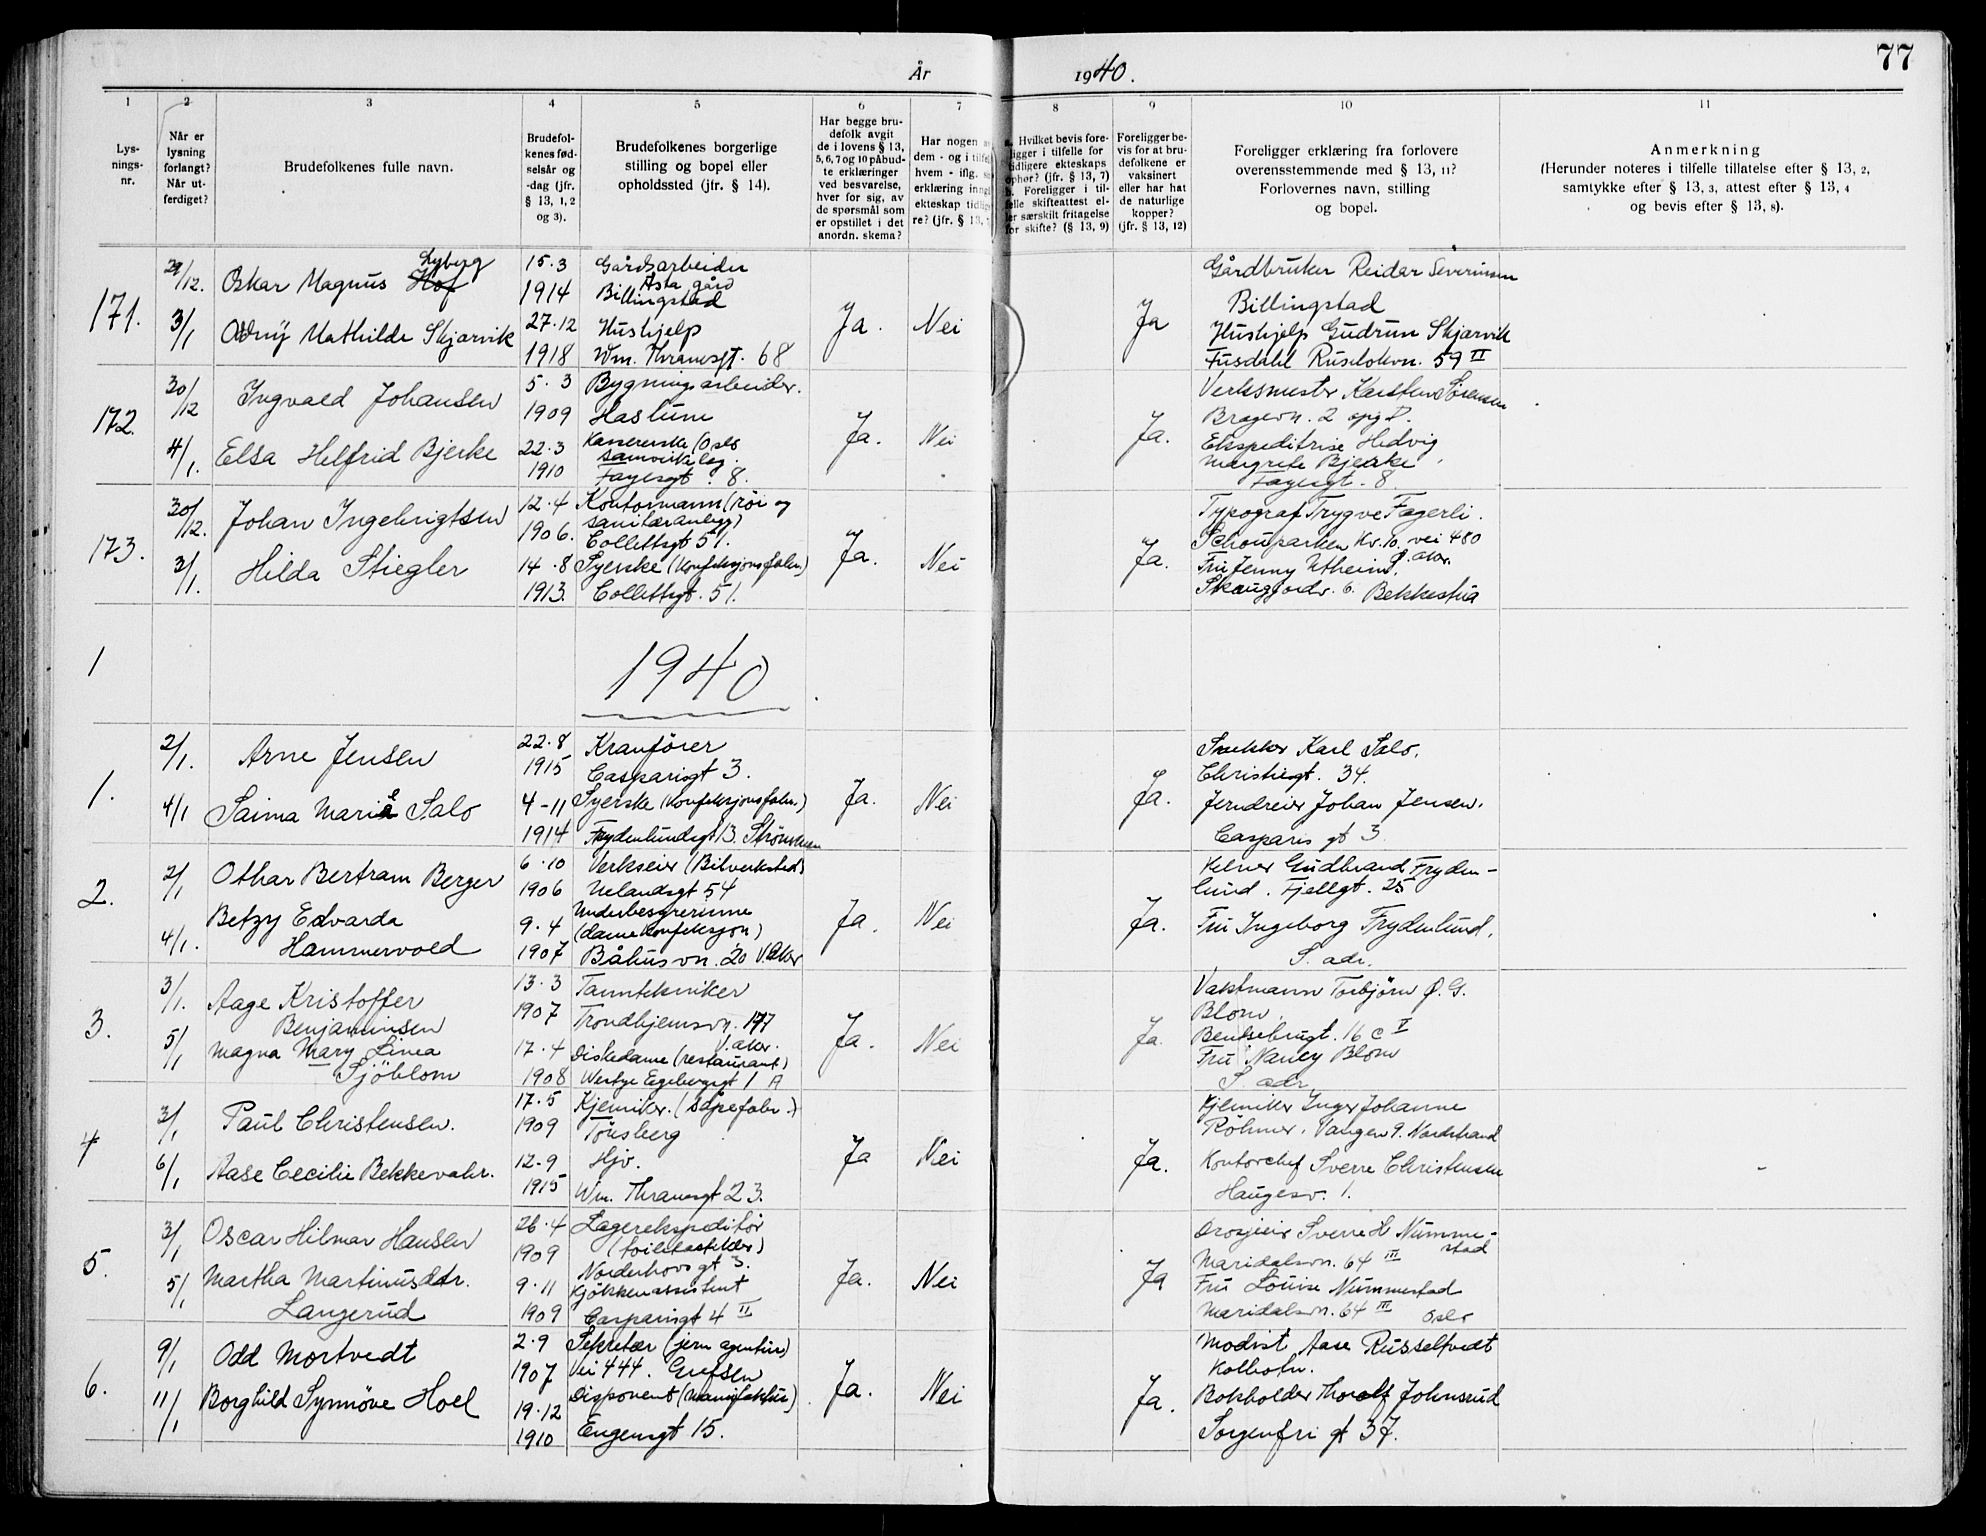 År 1940.
77
1 2 3 4 5 6 7 8 9 10 11
Lys-
nings-
nr.
Når er
lysning
forlangt?
Når ut-
ferdiget?
Brudefolkenes fulle navn.
Brudefol-
kenes fød-
selsår og
-dag (jfr.
§ 13, 1, 2
og 3).
Brudefolkenes borgerlige
stilling og bopel eller
opholdssted (jfr. § 14).
Har begge bru-
defolk avgit
de i lovens § 13,
5, 6, 7 og 10 påbud-
te erklæringer
ved besvarelse,
hver for sig, av
de spørsmål som
er opstillet i det
anordn. skema?
Har nogen a
dem - og i tilfel
hvem - iflg.
erklæring inng
ekteskap tidlig
re? (jfr. § 13,
a. Hvilket bevis fore-
ligger i tilfelle for
tidligere ekteskaps
ophør? (jfr. § 13, 7)
b. Foreligger i til-
felle skifteattest el-
ler særskilt fritagelse
for skifte? (§ 13, 9)
Foreligger be-
vis for at bru-
defolkene er
vaksinert
eller har hat
de naturlige
kopper?
(jfr. § 13, 12)
Foreligger erklæring fra forlovere
overensstemmende med § 13, 11?
Forlovernes navn, stilling
og bopel.
Anmerkning
(Herunder noteres i tilfelle tillatelse efter § 13, 2,
samtykke efter § 13, 3, attest efter § 13, 4
og bevis efter § 13, 8).
171.
29/12.
3/1
Lyberg
Oskar Magnus Hof
Odny Mathilde Skjørvik
15.3
1914
27.12
1918
Gårdsarbeider
Asta gård
Billingstad
Hushjelp
Wm. Thranesgt. 68
Ja.
Nei
Ja
Gårdbruker Reidar Severinsen
Billingstad
Hushjelp Gudrun Skjørvik
Fusdahl Ruseløkvn. 59 II
172.
30/12
4/1.
Ingvald Johansen
Elsa Helfrid Bjerke
5.3
1909
22.3
1910
Bygningsarbeider.
Haslum
Kassererske (Oslo
samvirkelag.
Fayesgt. 8.
Ja.
Nei
Ja.
Verksmester Karsten Sørensen
Bragevn. 2 opg D.
Ekspeditrise Hedvig
Margrete Bjerke
Fayesgt. 8.
173.
30/12.
3/1.
Johan Ingebrigtsen
Hilda Stiegler
12.4
1906.
14.8
1913.
Kontormann (rør og
sanitæranlegg)
Collettsgt 51.
Syerske (Konfeksjonsfabr.)
Collettsgt. 51.
Ja.
Nei
Ja.
Typograf Trygve Fagerli.
Schouparken Kv. 10. vei 480
Ø. Aker.
Fru Jenny Utheim.
Skaugfordr. 6. Bekkestua
1
1940
1.
2/1.
4/1
Arne Jensen
Saima Marie Salo
22.8
1915
4-11
1914
Kranfører
Casparisgt 3.
Syerske (Konfeksjonsfabr.)
Frydenlundsgt 13. Strömmen
Ja.
Nei
Ja.
Snekker Karl Salo.
Christiesgt. 34.
Jerndreier Johan Jensen.
Casparis gt 3.
2.
2/1
4/1.
Othar Bertram Berger
Betzy Edvarda
Hammervold
6.10
1906
9.4
1907
Verkseier (Bilverksted)
Uelandsgt 54
Underbestyrerinne
(damekonfeksjon)
Båhusvn. 20 V.Aker
Ja.
Nei
Ja.
Kelner Gudbrand Fryden-
lund. Fjellgt. 25
Fru Ingeborg Frydenlund.
S. adr.
3.
3/1.
5/1
Aage Kristoffer
Benjaminsen
Magna Mary Linea
Sjöblom
13.3
1907
17.4
1908
Tanntekniker
Trondhjemsvn. 177
V.aker.
Diskedame (restaurant)
Westye Egebergsgt 1 A
Ja.
Nei
Ja.
Vaktmann Torbjörn Ø. G.
Blom.
Bentsebrugt. 16 c I
Fru Nancy Blom
S adr.
4
3/1
6/1
Paul Christensen.
Aase Cecilie Bekkevahr.
17.5
1909
12-9
1915
Kjemiker. (såpefabr.)
Tönsberg
Hjv.
Wm. Thranesgt 23.
Ja
Nei
Ja.
Kjemiker Inger Johanne
Röhmer. Vangen 9. Nordstrand
Kontorchef Sverre Christensen
Haugesv. 1.
5.
3/1
5/1
Oscar Hilmar Hansen
Martha Martinusdtr.
Langerud
26.4
1909
9.11
1909
Lagerekspeditör
(toilettartikler)
Norderhovsgt 3.
Kjökkenassistent
Casparisgt 4 II
Ja.
Nei
Ja
Drosjeeier Sverre H Numme-
stad
Maridalsvn. 64 III
Fru Louise Nummestad
Maridalsvn. 64 III Oslo
6.
9/1
11/1
Odd Mortvedt
Borghild Synnöve Hoel
2.9
1907
19.12
1910
Sekretær (jern agentur)
Vei 444. Grefsen
Disponent (manufaktur)
Eugensgt 15.
Ja.
Nei
Ja.
Modist Aase Russeltvedt
Kolbotn.
Bokholder Thorolf Johnsrud
Sorgenfri gt 37.